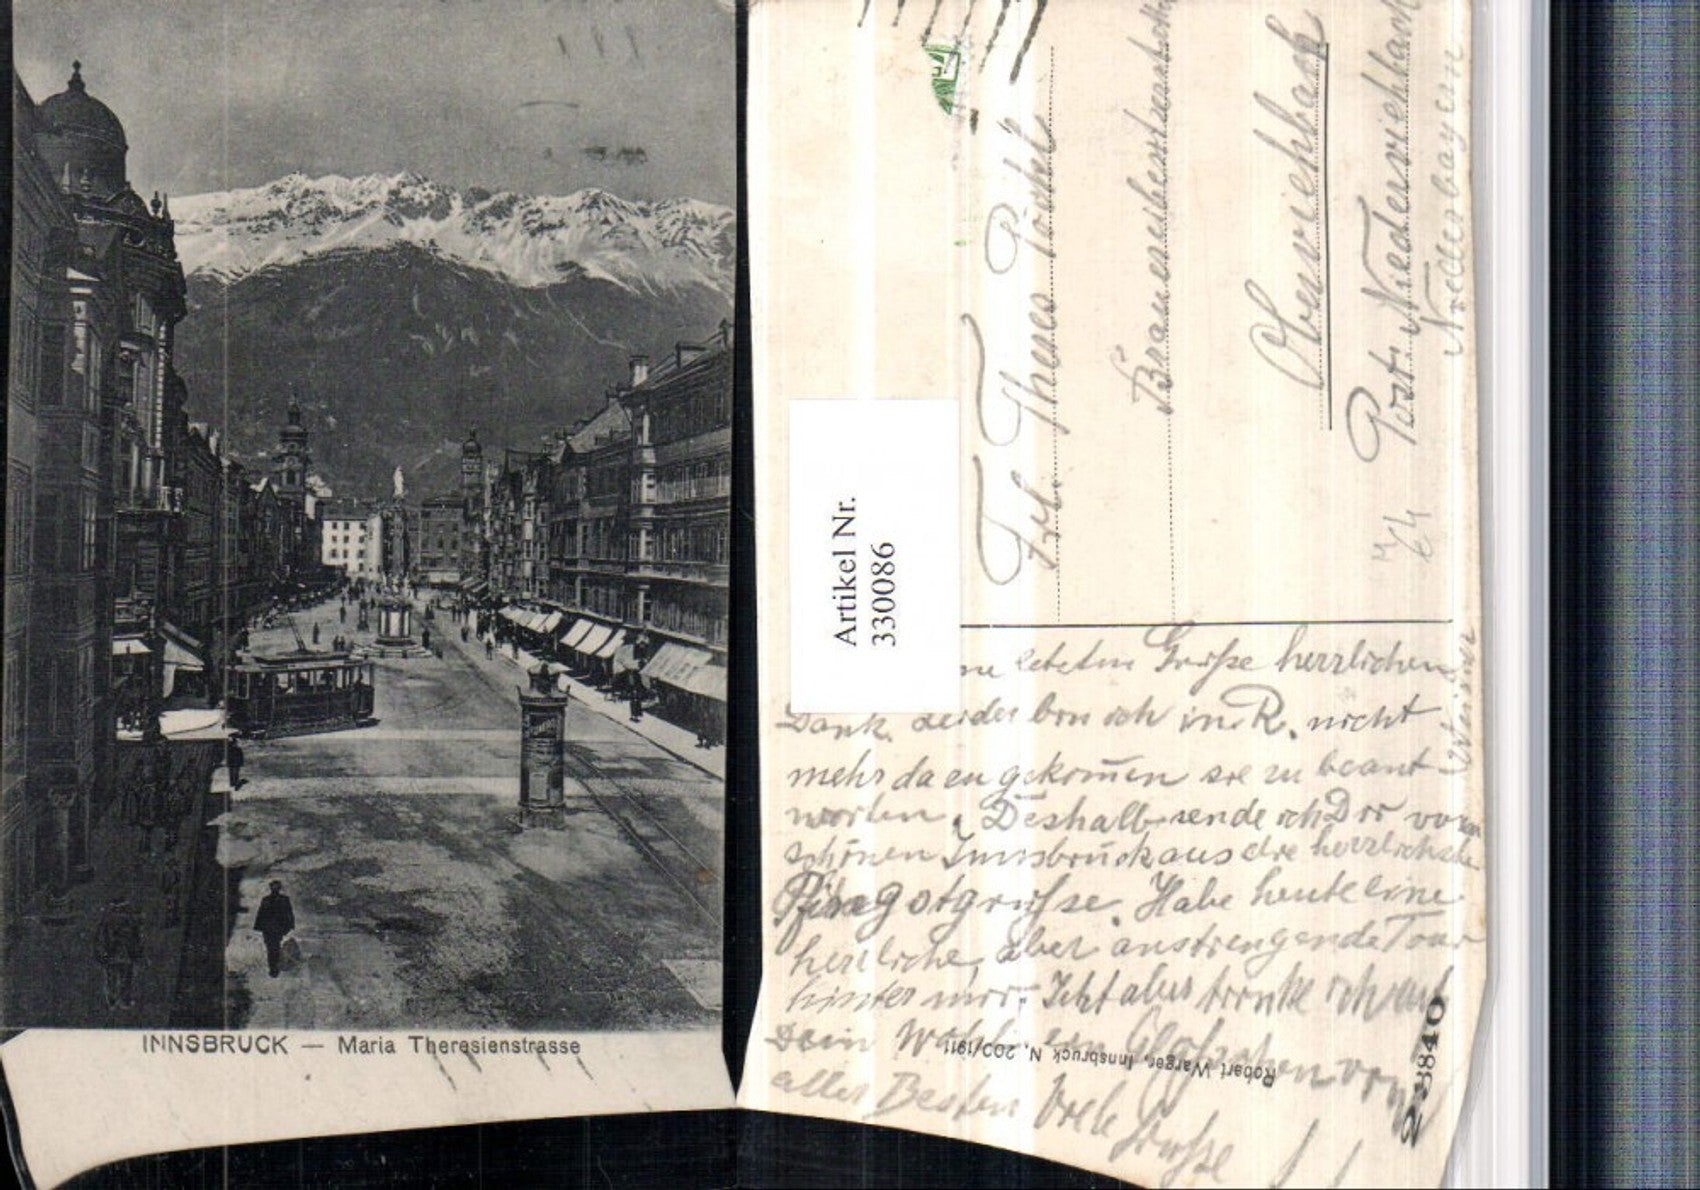 INNSBRUCK — Maria Theresienstrasse
Artikel Nr.
330086
Frl. Theres
Oberviehbach
Post: Niederviehbach
Niederbayern
Grüße herzlichen
Dank. Leider bin ich in R. nicht
mehr da zu gekom̄en sie zu beant-
worten. Deshalb sende ich Dir vom
schönen Innsbruck aus die herzlichste
Pfingstgrüsse. Habe heute eine
herrliche, aber anstrengende Tour
hinter mir. Jetzt aber trinke ich auf
Dein Wohl ein Gläschen vom
aller Besten Viele Grüsse
Robert Warger, Innsbruck N. 200/1911